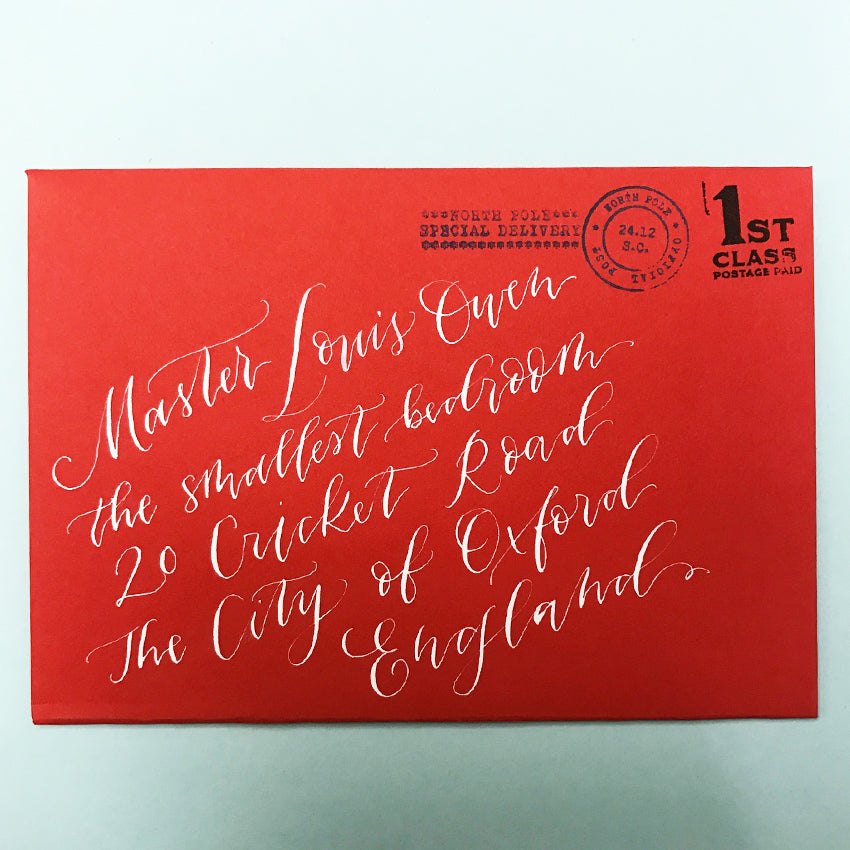 ***NORTH POLE***
SPECIAL DELIVERY
NORTH POLE
OFFICIAL POST
24.12
S.C.
1ST
CLASS
POSTAGE PAID
Master Louis Owen
the smallest bedroom
20 Cricket Road
The City of Oxford
England